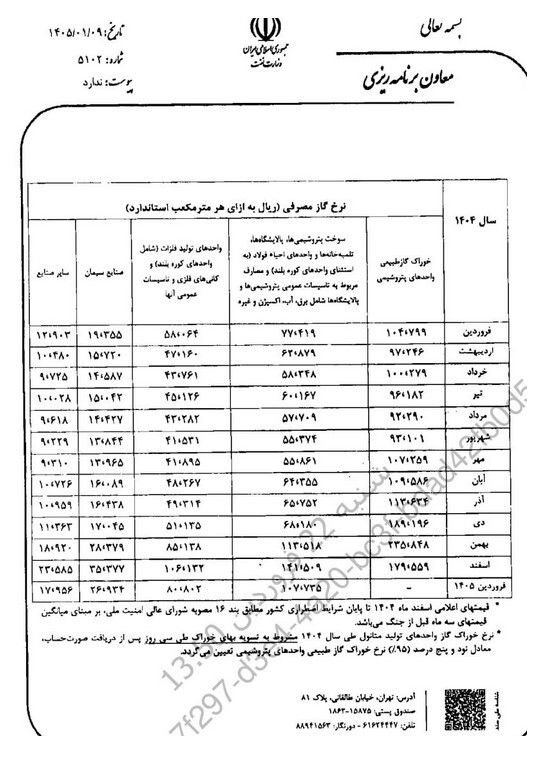 بسمه تعالی
معاون برنامه ریزی
جمهوری اسلامی ایران
وزارت نفت
تاریخ: ۱۴۰۵/۰۱/۰۹
شماره: ۵۱۰۲
پیوست: ندارد
سال ۱۴۰۴
نرخ گاز مصرفی (ریال به ازای هر مترمکعب استاندارد)
خوراک گازطبیعی واحدهای پتروشیمی
سوخت پتروشیمی‌ها، پالایشگاه‌ها، تلمبه‌خانه‌ها و واحدهای احیاء فولاد (به استثنای واحدهای کوره بلند) و مصارف مربوط به تاسیسات عمومی پتروشیمی‌ها و پالایشگاه‌ها شامل برق، آب، اکسیژن و غیره
واحدهای تولید فلزات (شامل واحدهای کوره بلند) و کانی‌های فلزی و تاسیسات عمومی آنها
صنایع سیمان
سایر صنایع
فروردین ۱۰۴،۷۹۹ ۷۷،۴۱۹ ۵۸،۰۶۴ ۱۹،۳۵۵ ۱۲،۹۰۳
اردیبهشت ۹۷،۲۴۶ ۶۲،۸۷۹ ۴۷،۱۶۰ ۱۵،۷۲۰ ۱۰،۴۸۰
خرداد ۱۰۰،۲۷۹ ۵۸،۳۴۸ ۴۳،۷۶۱ ۱۴،۵۸۷ ۹،۷۲۵
تیر ۹۶،۱۸۲ ۶۰،۱۶۷ ۴۵،۱۲۶ ۱۵،۰۴۲ ۱۰،۰۲۸
مرداد ۹۲،۲۹۰ ۵۷،۷۰۹ ۴۳،۲۸۲ ۱۴،۴۲۷ ۹،۶۱۸
شهریور ۹۳،۱۰۱ ۵۵،۳۷۴ ۴۱،۵۳۱ ۱۳،۸۴۴ ۹،۲۲۹
مهر ۱۰۷،۲۵۹ ۵۵،۸۶۱ ۴۱،۸۹۵ ۱۳،۹۶۵ ۹،۳۱۰
آبان ۱۰۹،۵۸۶ ۶۴،۳۵۵ ۴۸،۲۶۷ ۱۶،۰۸۹ ۱۰،۷۲۶
آذر ۱۱۳،۶۳۴ ۶۵،۷۵۲ ۴۹،۳۱۴ ۱۶،۴۳۸ ۱۰،۹۵۹
دی ۱۸۹،۱۹۶ ۶۸،۱۸۰ ۵۱،۱۳۵ ۱۷،۰۴۵ ۱۱،۳۶۳
بهمن ۲۳۵،۸۴۸ ۱۱۳،۵۱۸ ۸۵،۱۳۸ ۲۸،۳۷۹ ۱۸،۹۲۰
اسفند ۱۷۹،۵۵۹ ۱۴۱،۵۰۹ ۱۰۶،۱۳۲ ۳۵،۳۷۷ ۲۳،۵۸۵
فروردین ۱۴۰۵ - ۱۰۷،۷۳۵ ۸۰،۸۰۲ ۲۶،۹۳۴ ۱۷،۹۵۶
* قیمتهای اعلامی اسفند ماه ۱۴۰۴ تا پایان شرایط اضطراری کشور مطابق بند ۱۶ مصوبه شورای عالی امنیت ملی، بر مبنای میانگین
قیمتهای سه ماه قبل از جنگ می‌باشد.
* نرخ خوراک گاز واحدهای تولید متانول طی سال ۱۴۰۴ مشروط به تسویه بهای خوراک طی سی روز پس از دریافت صورت‌حساب،
معادل نود و پنج درصد (۹۵٪) نرخ خوراک گاز طبیعی واحدهای پتروشیمی تعیین می‌گردد.
شنبه 22 فروردین 13:50
آدرس: تهران، خیابان طالقانی، پلاک ۸۱
صندوق پستی: ۱۵۸۷۵-۱۸۶۳
تلفن: ۶۱۶۲۴۴۴۷ - دورنگار: ۸۸۹۴۱۵۶۳
شناسه ملی سند